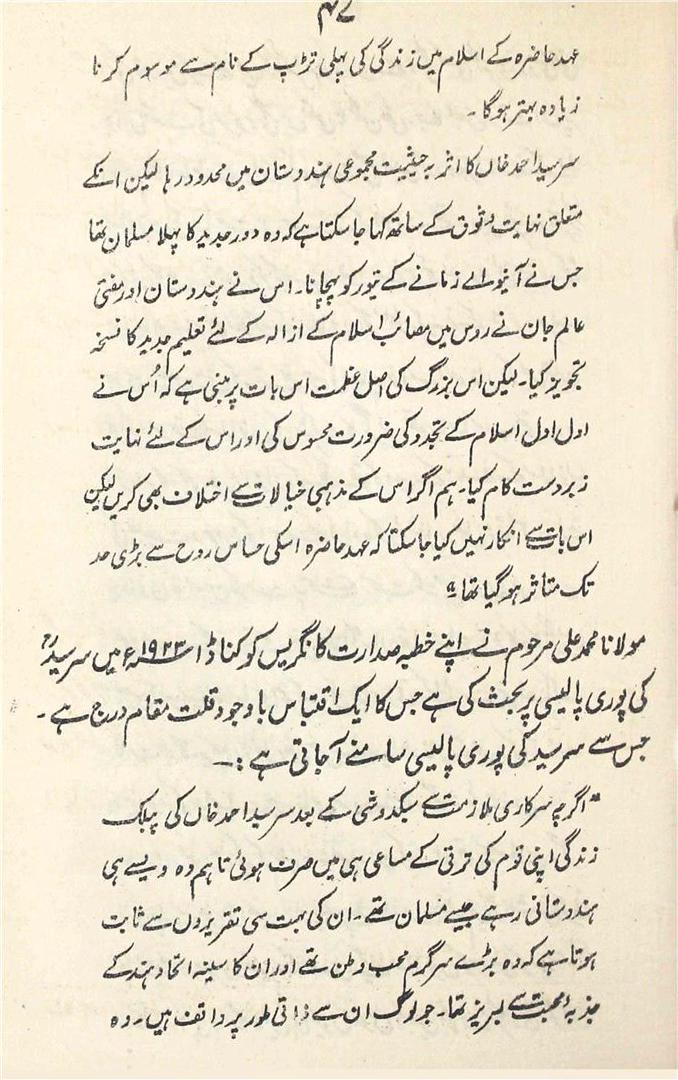 ۴۷
عہد حاضرہ کے اسلام میں زندگی کی پہلی تڑپ کے نام سے موسوم کرنا
زیادہ بہتر ہوگا۔
سرسید احمد خاں کا اثر بہ حیثیت مجموعی ہندوستان میں محدود رہا لیکن انکے
متعلق نہایت وثوق کے ساتھ کہا جا سکتا ہے کہ وہ دور جدید کا پہلا مسلمان تھا
جس نے آنیوالے زمانے کے تیور کو پہچانا۔ اس نے ہندوستان اور مفتی
عالم جان نے روس میں مصائب اسلام کے ازالہ کے لئے تعلیم جدید کا نسخہ
تجویز کیا۔ لیکن اس بزرگ کی اصل عظمت اس بات پر مبنی ہے کہ اُس نے
اول اول اسلام کے تجدد کی ضرورت محسوس کی اور اس کے لئے نہایت
زبردست کام کیا۔ ہم اگر اس کے مذہبی خیالات سے اختلاف بھی کریں لیکن
اس بات سے انکار نہیں کیا جا سکتا کہ عہد حاضرہ اسکی حساس روح سے بڑی حد
تک متاثر ہو گیا تھا"
مولانا محمد علی مرحوم نے اپنے خطبہ صدارت کانگریس کوکناڈا ۱۹۲۳ء میں سرسیدؒ
کی پوری پالیسی پر بحث کی ہے جس کا ایک اقتباس باوجود قلت مقام درج ہے۔
جس سے سرسید کی پوری پالیسی سامنے آجاتی ہے :۔
"اگرچہ سرکاری ملازمت سے سبکدوشی کے بعد سرسید احمد خاں کی پبلک
زندگی اپنی قوم کی ترقی کے مساعی ہی میں صرف ہوئی تاہم وہ ویسے ہی
ہندوستانی رہے جیسے مسلمان تھے۔ ان کی بہت سی تقریروں سے ثابت
ہوتا ہے کہ وہ بڑے سرگرم محب وطن تھے اور ان کا سینہ اتحاد ہند کے
جذبۂ محبت سے لبریز تھا۔ جو لوگ ان سے ذاتی طور پر واقف ہیں۔ وہ